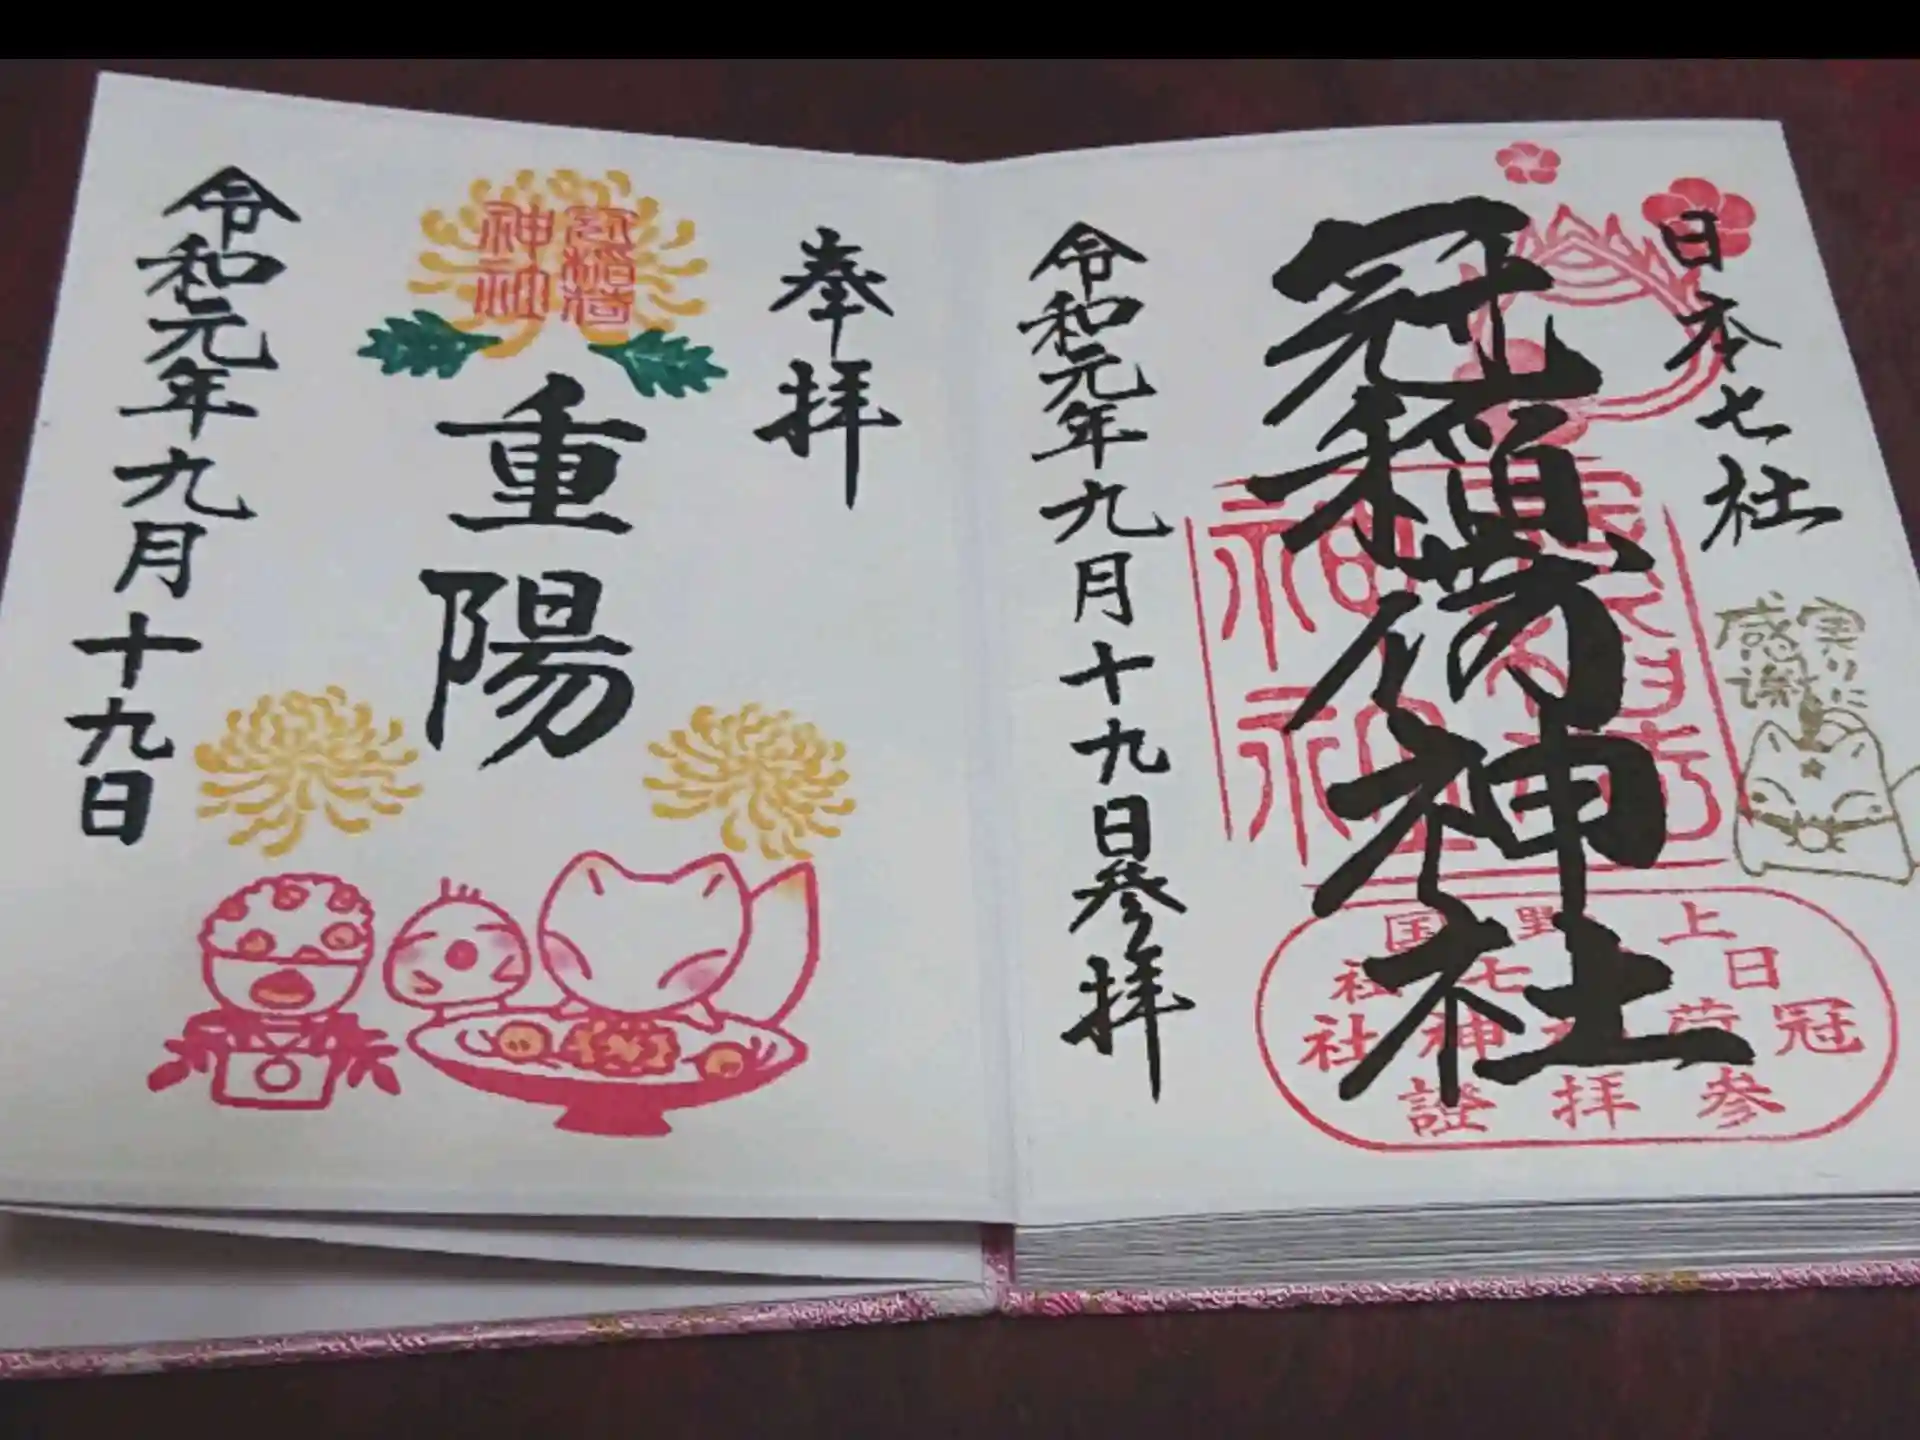 日本七社
冠稲荷神社
実りに
感謝
上野国
日
七社
冠
荷
神社
参拝證
令和元年九月十九日参拝
奉拝
冠稲荷
神社
重陽
令和元年九月十九日